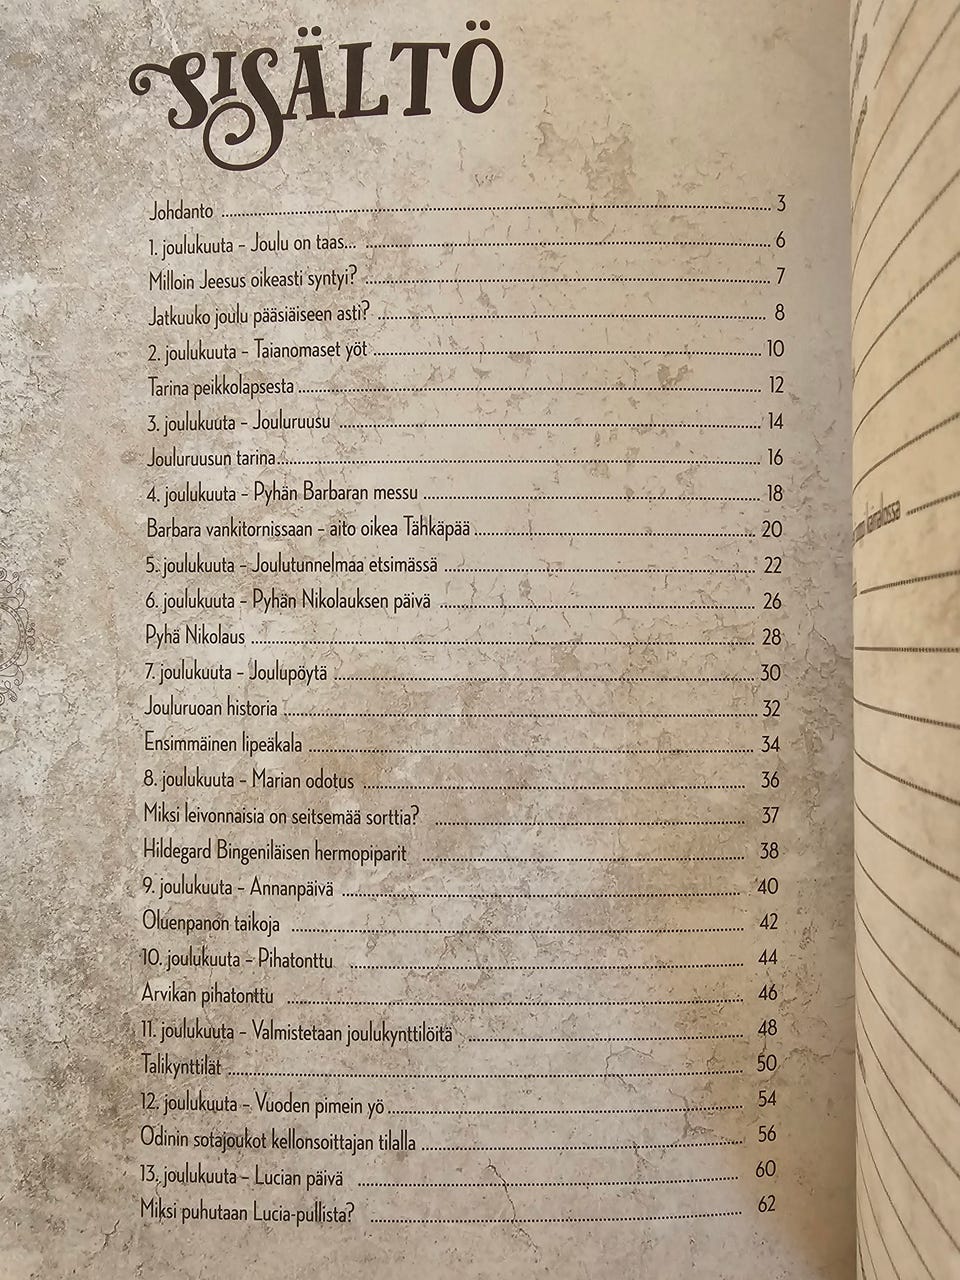 SISÄLTÖ
Johdanto ........ 3
1. joulukuuta – Joulu on taas... ........ 6
Milloin Jeesus oikeasti syntyi? ........ 7
Jatkuuko joulu pääsiäiseen asti? ........ 8
2. joulukuuta – Taianomaset yöt ........ 10
Tarina peikkolapsesta ........ 12
3. joulukuuta – Jouluruusu ........ 14
Jouluruusun tarina ........ 16
4. joulukuuta – Pyhän Barbaran messu ........ 18
Barbara vankitornissaan – aito oikea Tähkäpää ........ 20
5. joulukuuta – Joulutunnelmaa etsimässä ........ 22
6. joulukuuta – Pyhän Nikolauksen päivä ........ 26
Pyhä Nikolaus ........ 28
7. joulukuuta – Joulupöytä ........ 30
Jouluruoan historia ........ 32
Ensimmäinen lipeäkala ........ 34
8. joulukuuta – Marian odotus ........ 36
Miksi leivonnaisia on seitsemää sorttia? ........ 37
Hildegard Bingeniläisen hermopiparit ........ 38
9. joulukuuta – Annanpäivä ........ 40
Oluenpanon taikoja ........ 42
10. joulukuuta – Pihatonttu ........ 44
Arvikan pihatonttu ........ 46
11. joulukuuta – Valmistetaan joulukynttilöitä ........ 48
Talikynttilät ........ 50
12. joulukuuta – Vuoden pimein yö ........ 54
Odinin sotajoukot kellonsoittajan tilalla ........ 56
13. joulukuuta – Lucian päivä ........ 60
Miksi puhutaan Lucia-pullista? ........ 62